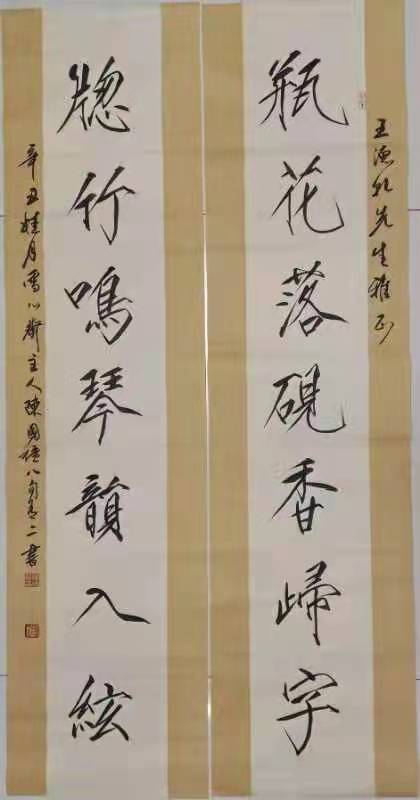 王漁礼先生雅正
瓶花落硯香歸字
牕竹鳴琴韻入絃
辛丑桂月雪心齋主人陳國柱八旬有二書